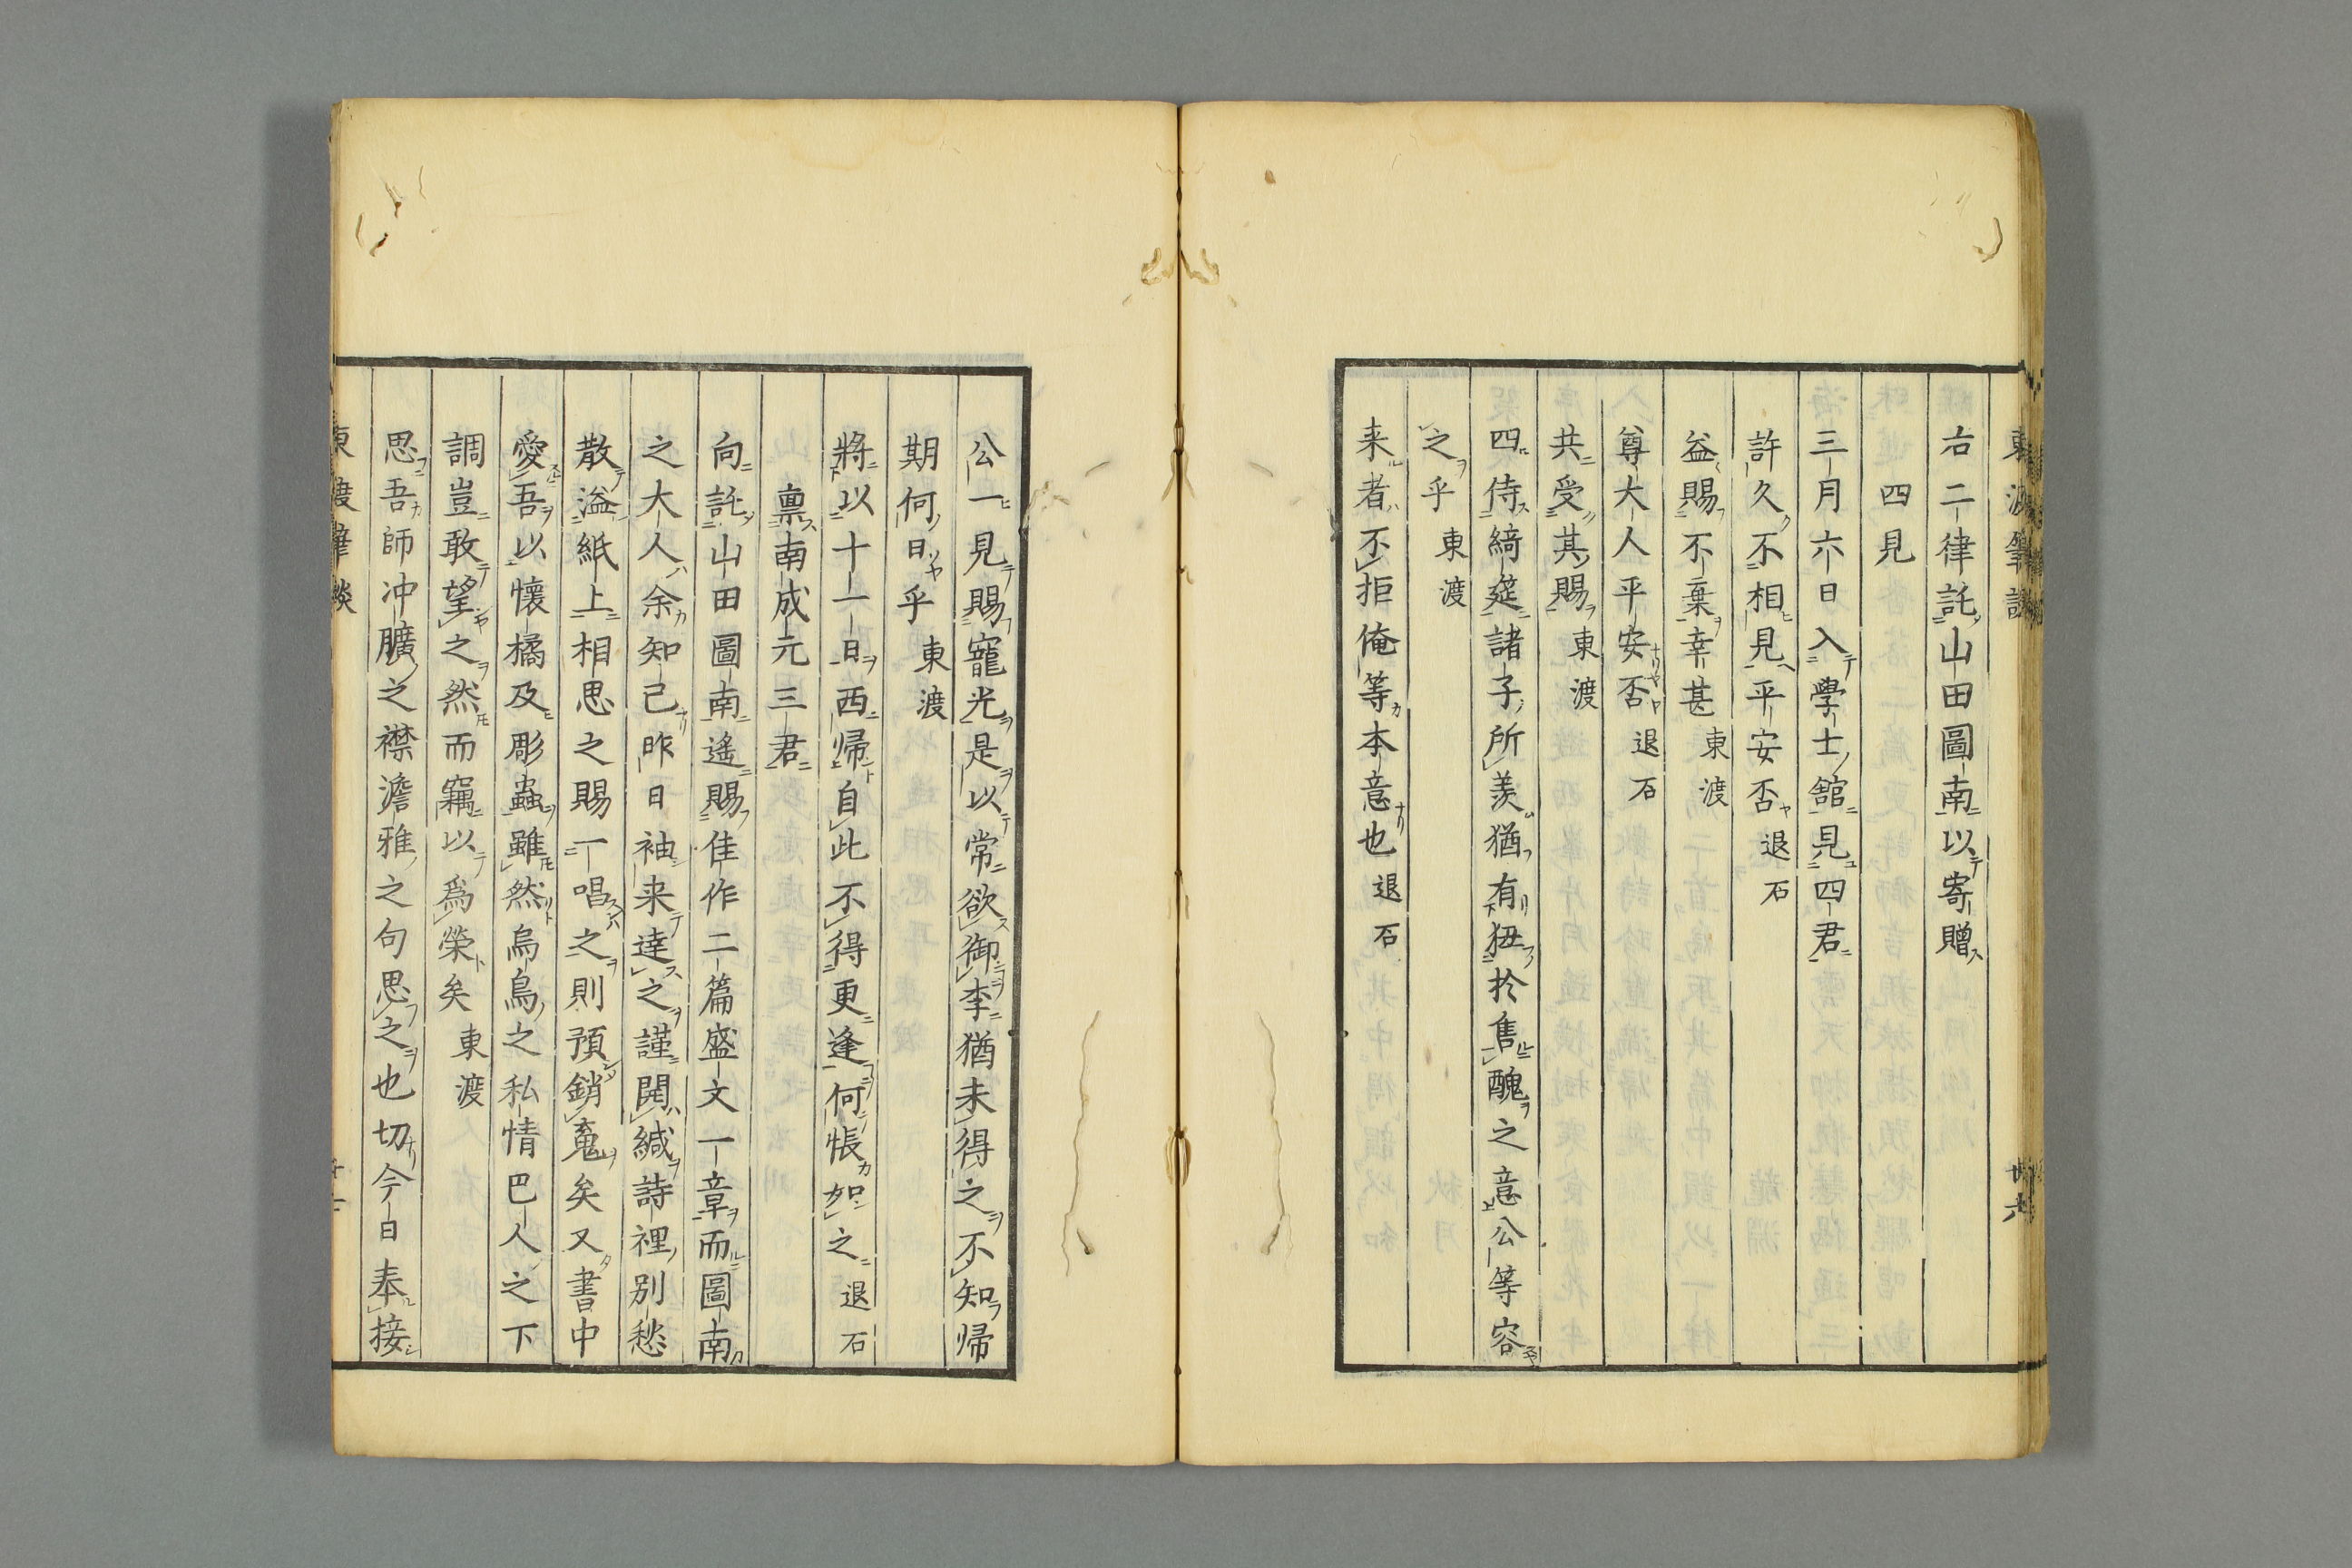 右二律託山田圖南以寄贈
四見
三月六日入學士舘見四君
許久不相見平安否 退石
益賜不棄幸甚 東渡
尊大人平安否 退石
共受其賜 東渡
四侍綺筵諸子所羨猶有狃於售醜之意公等容
之乎 東渡
来者不拒俺等本意也 退石
公一見賜寵光是以常欲御李猶未得之不知帰
期何日乎 東渡
將以十一日西帰自此不得更逢何悵如之 退石
稟南成元三君
向託山田圖南遙賜佳作二篇盛文一章而圖南
之大人余知己昨日袖来達之謹開緘詩裡別愁
散溢紙上相思之賜一唱之則預銷䰟矣又書中
愛吾以懷橘及彫蟲雖然烏鳥之私情巴人之下
調豈敢望之然而竊以爲榮矣 東渡
思吾師冲曠之襟澹雅之句思之也切今日奉接
東渡筆談